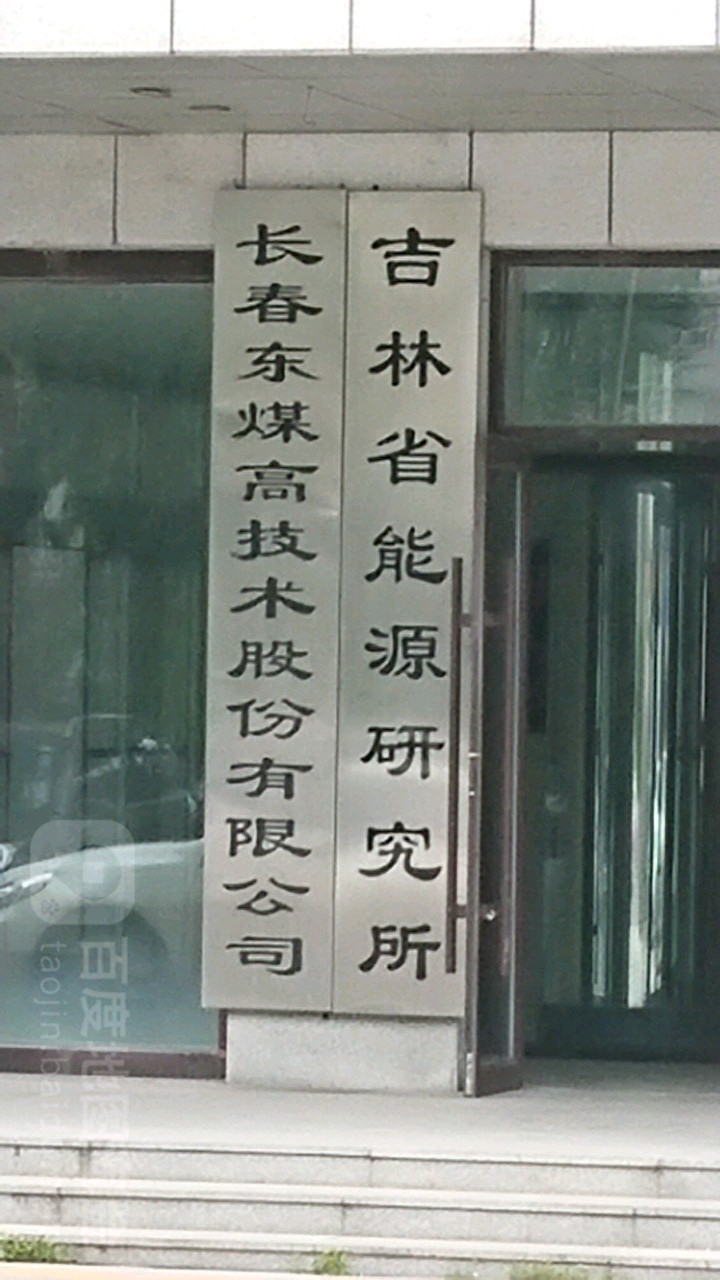 吉林省能源研究所
长春东煤高技术股份有限公司
百度地图
taojinbai